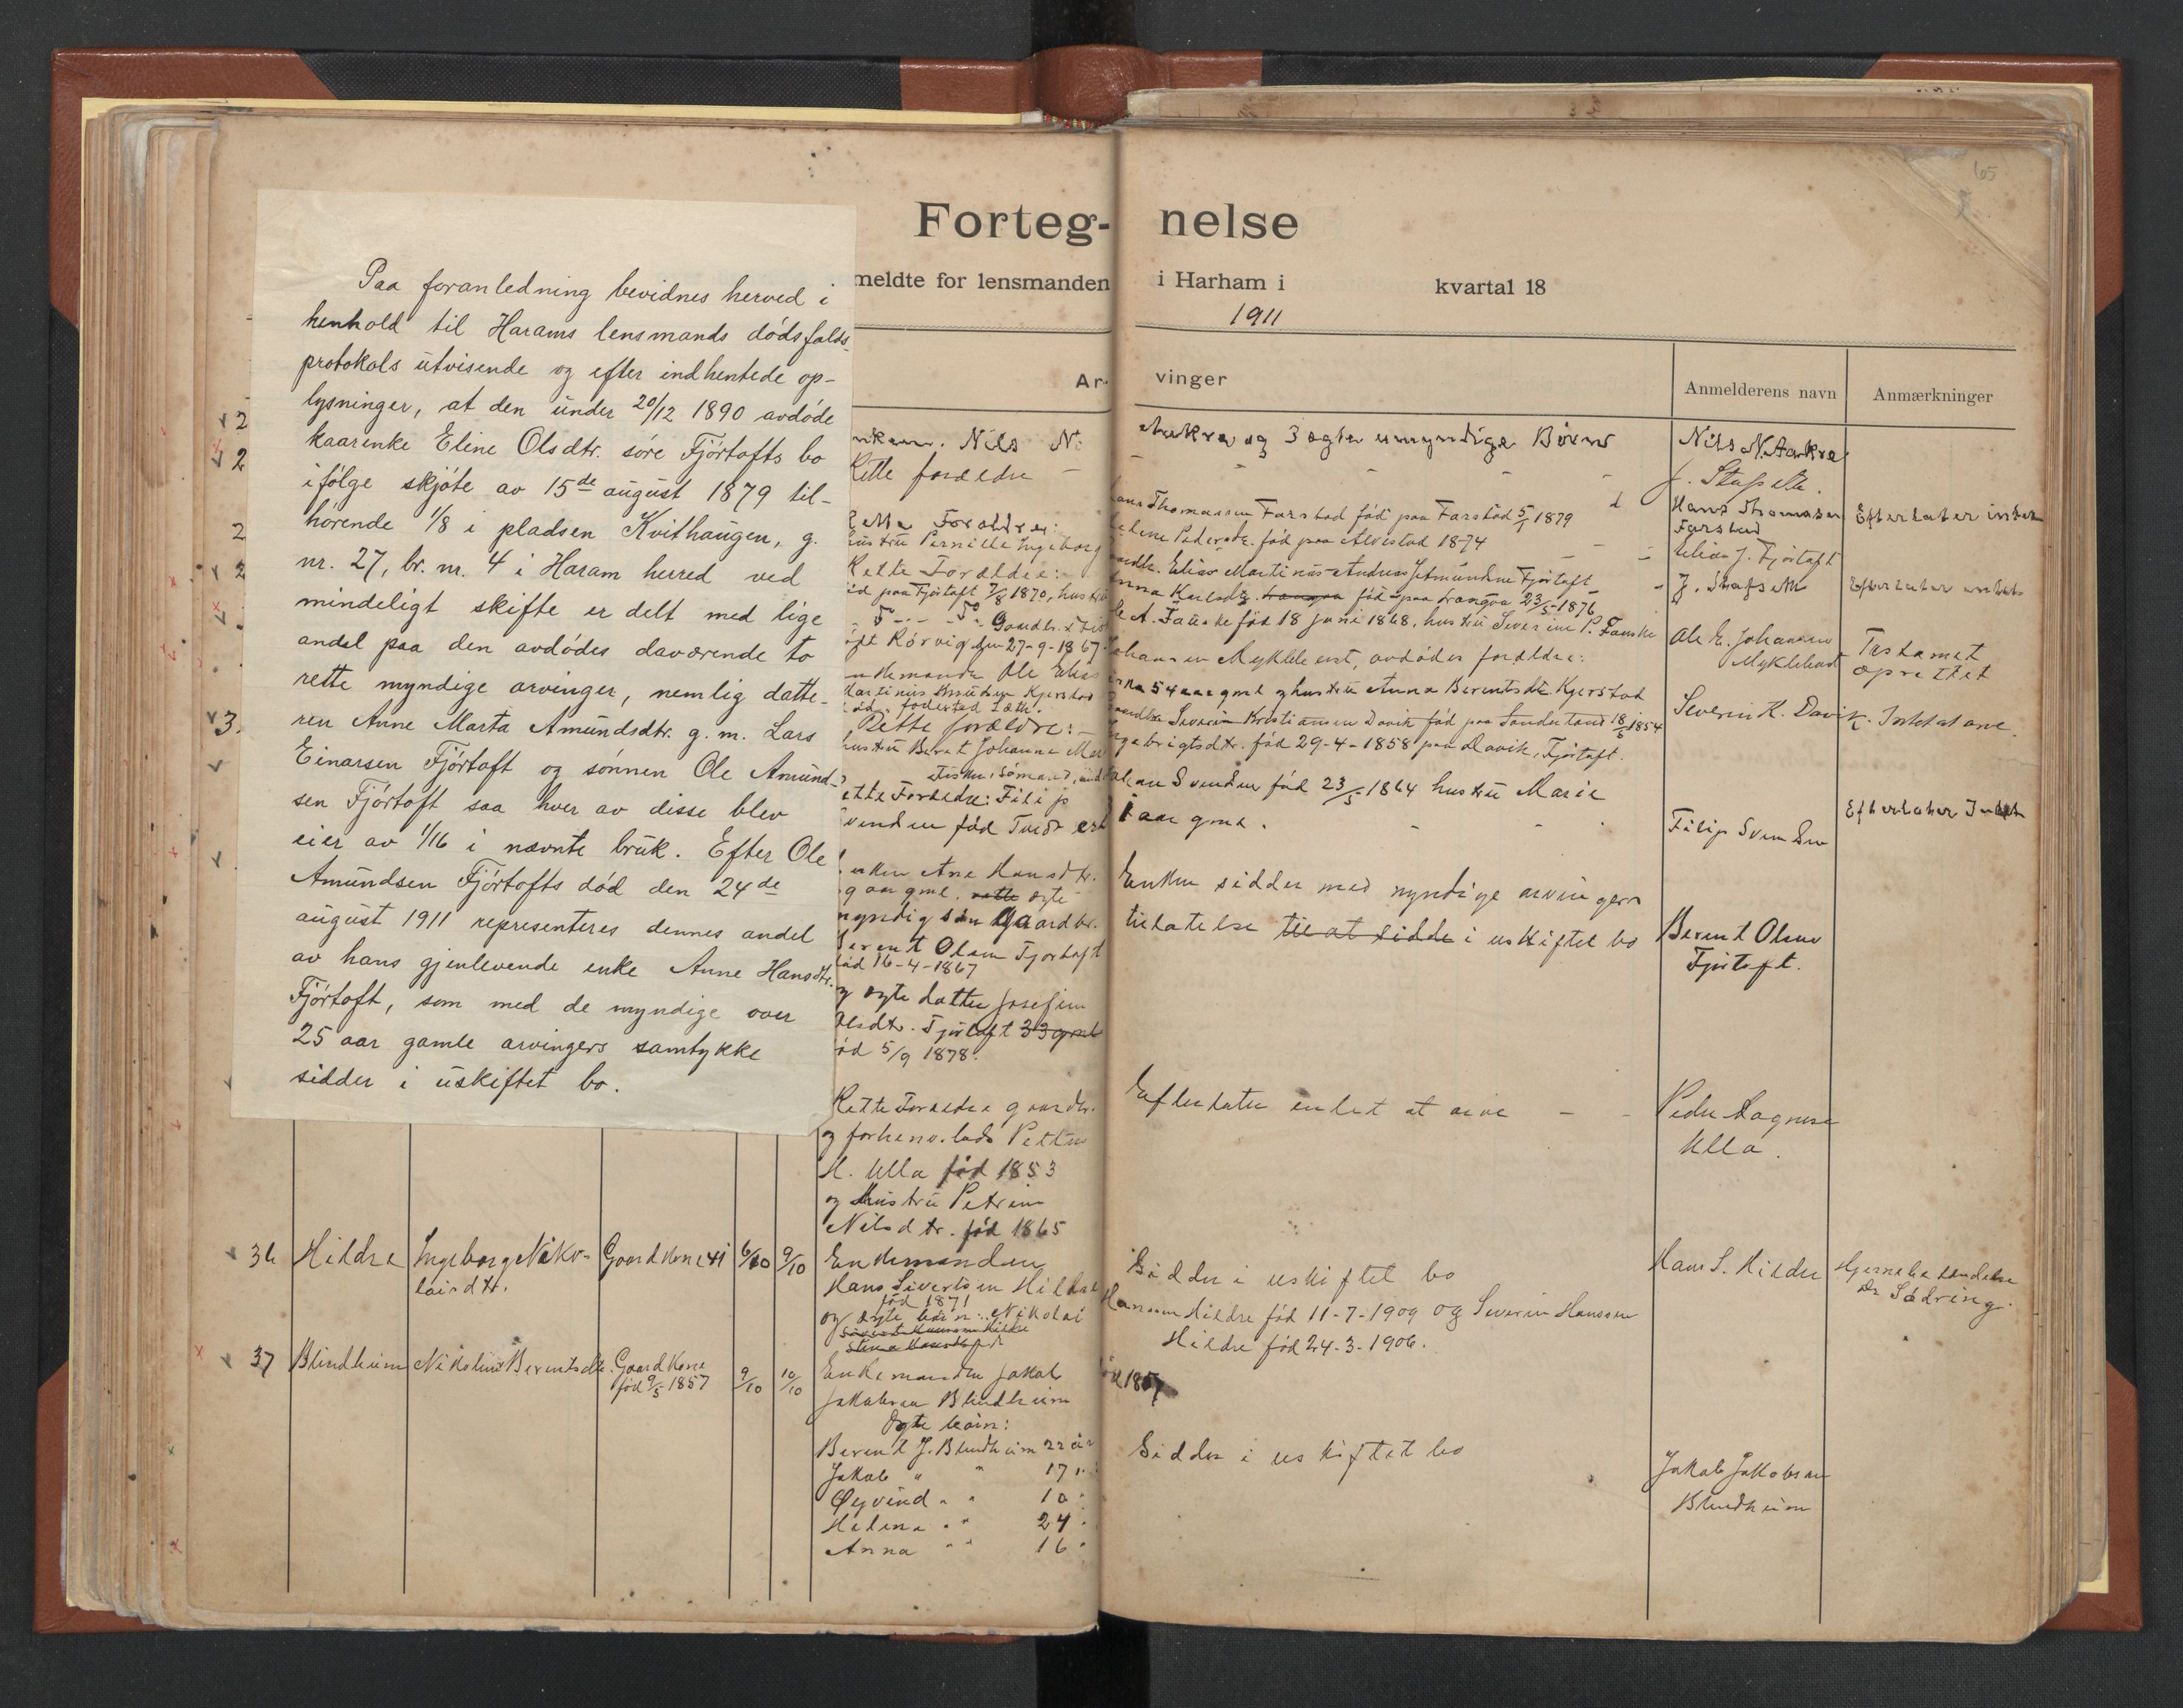 65
Forteg-nelse
meldte for lensmanden i Harham i kvartal 18
1911
Paa foranledning bevidnes herved i
henhold til Harams lensmands dödsfalds-
protokols utvisende og efter indhentede op-
lysninger, at den under 20/12 1890 avdöde
kaarenke Eline Olsdtr. söre Fjörtofts bo
ifölge skjöte av 15de august 1879 til-
hörende 1/8 i pladsen Kvithaugen, g.
nr. 27, br. nr. 4 i Haram herred ved
mindeligt skifte er delt med lige
andel paa den avdödes daværende to
rette myndige arvinger, nemlig datte-
ren Anne Marta Amundsdtr. g. m. Lars
Einarsen Fjörtoft og sönnen Ole Amund-
sen Fjörtoft saa hver av disse blev
eier av 1/16 i nævnte bruk. Efter Ole
Amundsen Fjörtofts död den 24de
august 1911 representeres dennes andel
av hans gjenlevende enke Anne Hansdtr.
Fjörtoft, som med de myndige over
25 aar gamle arvingers samtykke
sidder i uskiftet bo.
Ar-vinger
Anmelderens navn
Anmærkninger
Nils N. Aakre og 3 ægte umyndige Börn
Nils N. Aakre
Rette forældre
Rette Forældre:
Hans Thomassen Farstad föd paa Farstad 5/1 1879
Hans Thomassen
Farstad
Efterlater intet
hustru Pernille Ingeborg
föd paa Alvestad 1874
Rette Forældre:
Elias Martinus Andreas Jetmundsen Fjörtoft
Elias J. Fjörtoft
föd paa Fjörtoft 7/8 1870, hustru
föd paa Longva 23/5 1876
Efterlater intet
A. Fauske föd 18 juni 1868, hustru Severine P. Fauske
Rörvig den 27-9-1867
Johansen Myklebust, avdödes forældre:
Ole E. Johansen
Myklebust
Testamet
oprettet
54 aar gml og hustru Anna Berentsdtr Kjerstad
Rette forældre:
Severin Kristiansen Davik föd paa Söndeland 18/8 1854
Severin K. Davik.
hustru Beret Johanna
föd 29-4-1858 paa Davik, Fjörtoft.
Rette Forældre: Filip
Svendsen föd 23/5 1864 hustru Marie
Svendsen föd
aar gml.
Filip Svendsen
Efterlater Intet
Enken Ane Hansdtr.
aar gml. rette ægte
myndig sön Gaardbr.
Berent Olsen Fjortoft
föd 16-4-1867
og ægte datter Josefine
Olsdtr. Fjörtoft 33 gml
föd 5/9 1878.
Enken sidder med myndige arvingers
tilatelse til at sidde i uskiftet bo
Berent Olsen
Fjörtoft.
Rette Forældre gaardbr.
og forhenv. lods Petter
M. Ulla föd 1853
og Hustru Petrine
Nilsdtr. föd 1865
Efterlater intet at arve - -
Peder Magnus
Ulla.
36 Hildre Ingeborg Niko- Gaardkone 41 6/10 9/10 Enkemanden
laisdtr.
Hans Sivertsen Hildre
föd 1871
og ægte börn: Nikolai
Sidder i uskiftet bo
Hansen Hildre föd 11-7-1909 og Severin Hanssen
Hildre föd 24-3-1906.
Hans S. Hildre
Hjernebetændelse
Dr Södring.
37 Blindheim Nikoline Berentsdtr. Gaardkone 9/10 10/10 Enkemanden Jakob
föd 9/5 1857
Jakobsen Blindheim
föd 1857
Ægte börn:
Berent J. Blindheim 22 år
Jakob " " 17 "
Öyvind " " 10 "
Helena " " 24 "
Anna " " 16 "
Sidder i uskiftet bo
Jakob Jakobsen
Blindheim